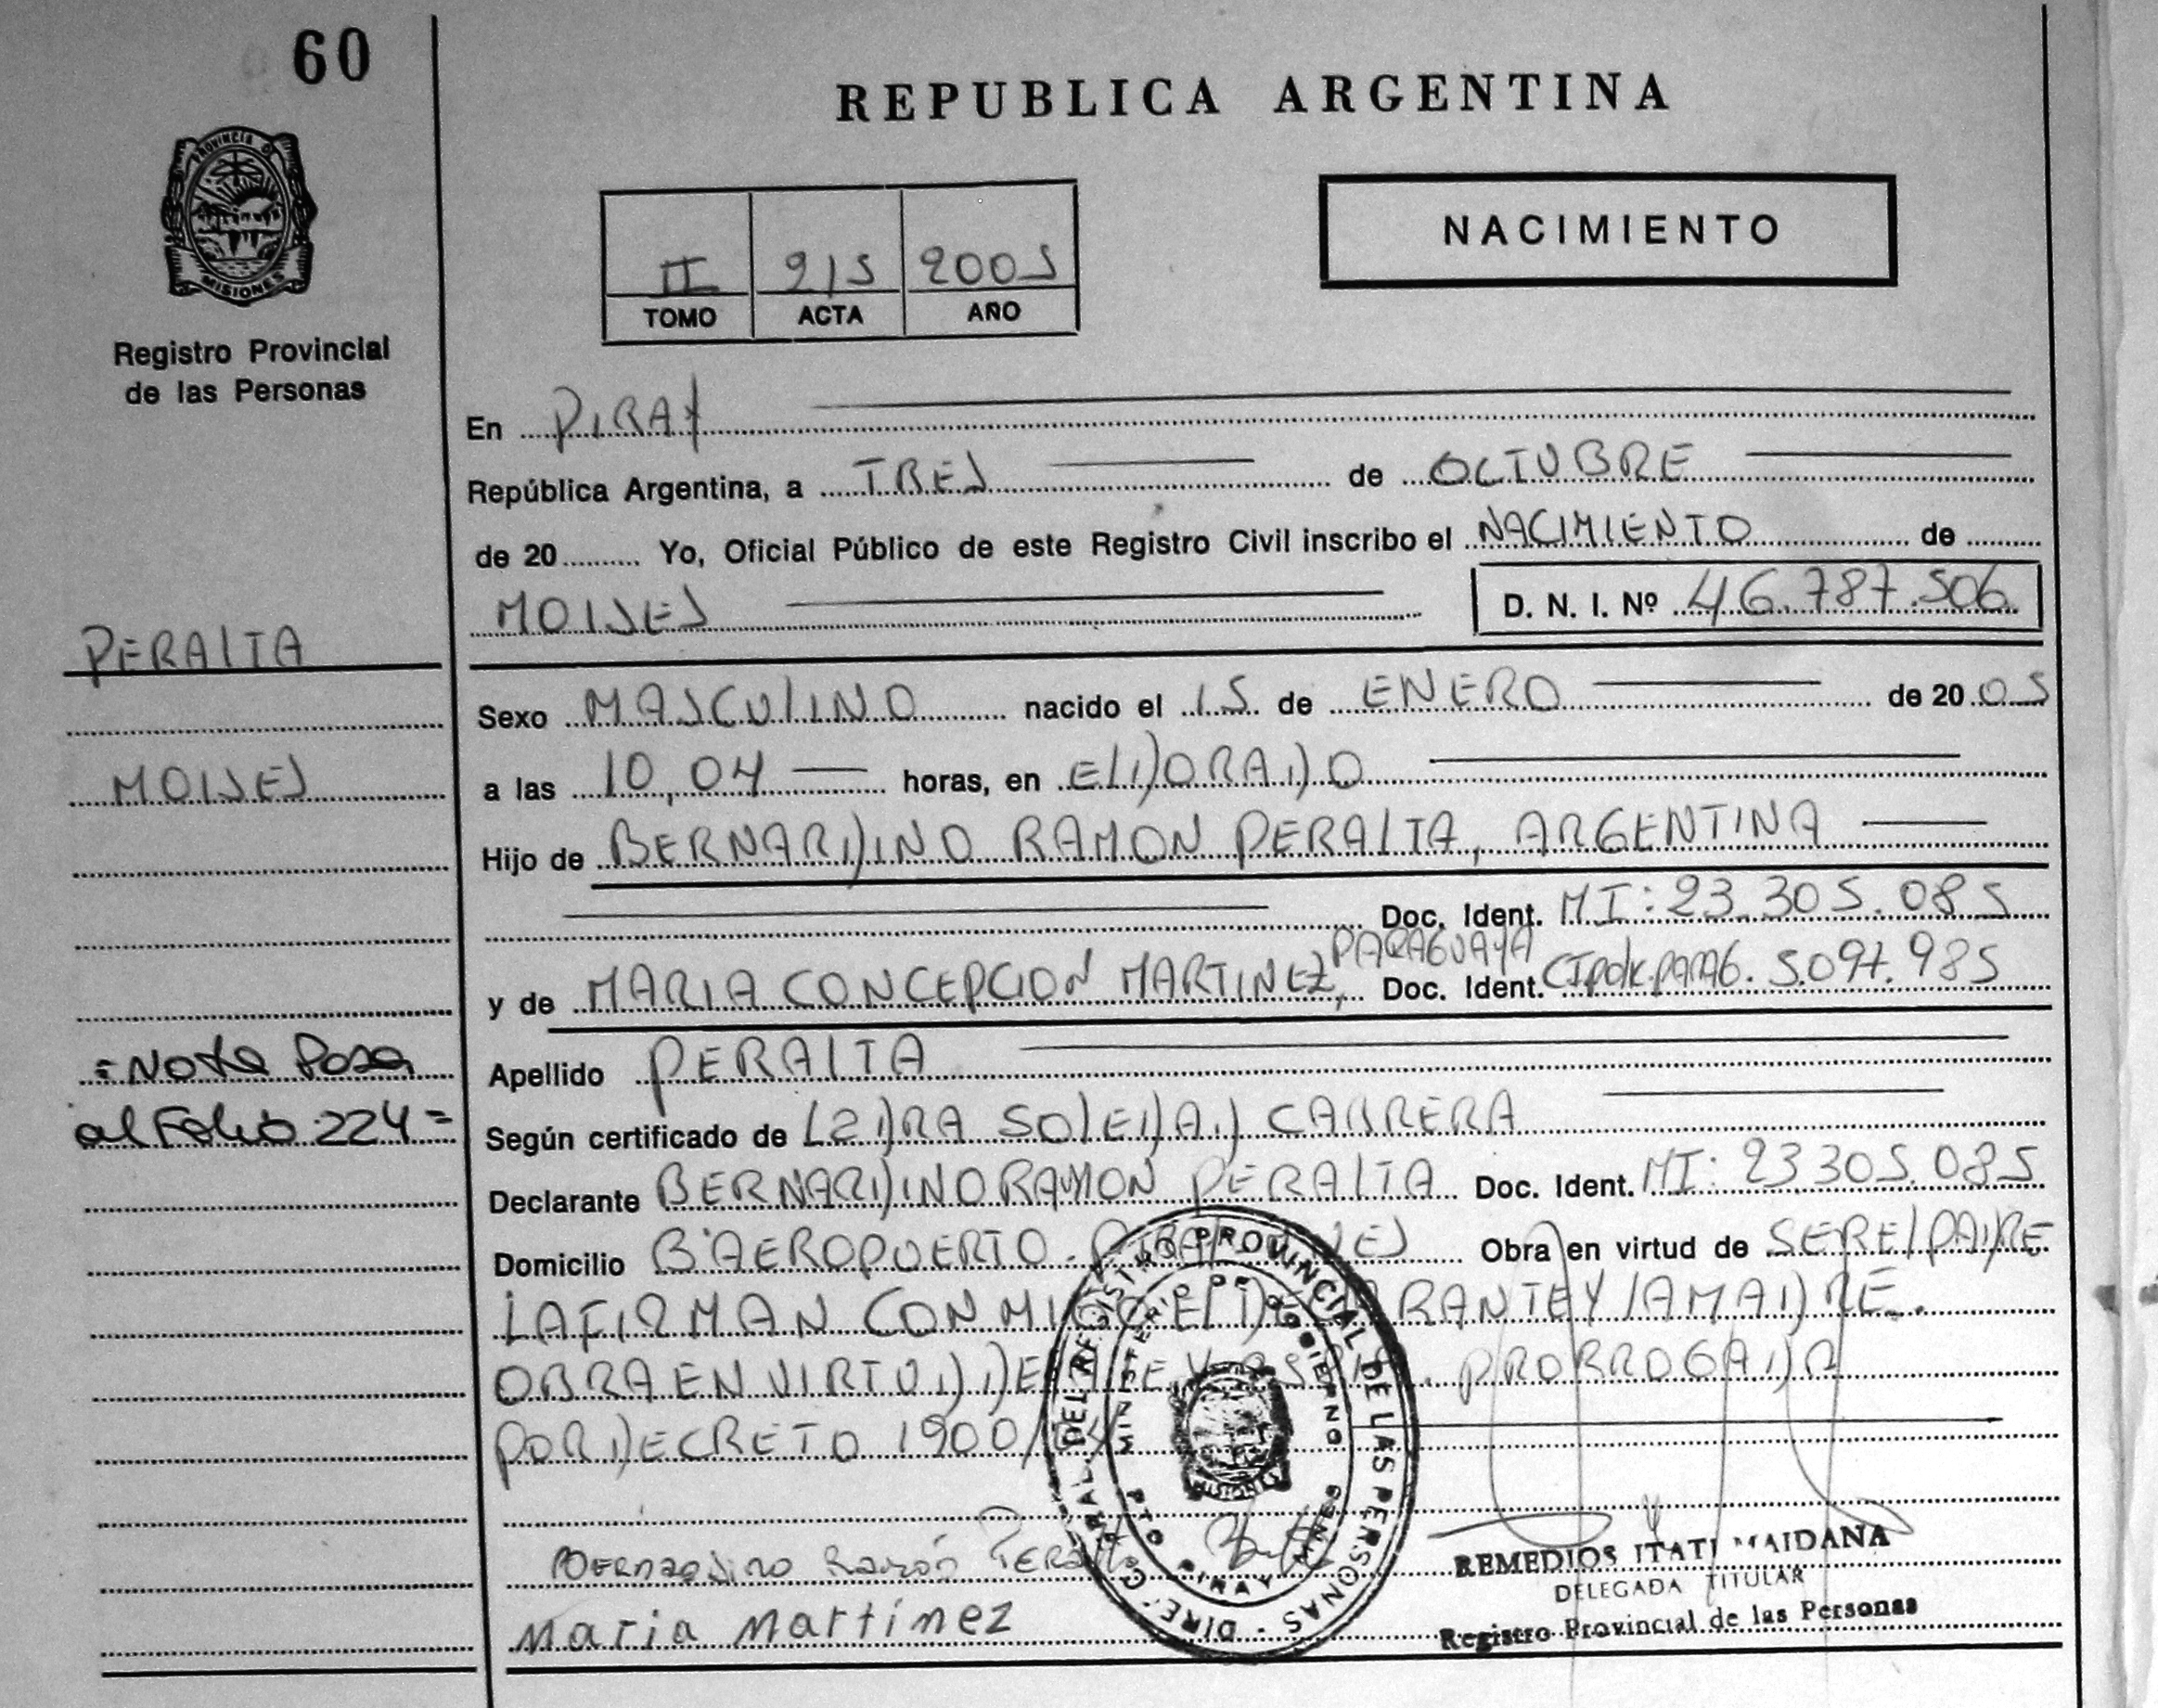 60
REPUBLICA ARGENTINA
PROVINCIA D
MISIONES
Registro Provincial
de las Personas
II 215 2005
TOMO ACTA AÑO
NACIMIENTO
En PIRAY
República Argentina, a TRES de OCTUBRE
de 20 Yo, Oficial Público de este Registro Civil inscribo el NACIMIENTO de
MOISES D. N. I. Nº 46.787.506
PERALTA
Sexo MASCULINO nacido el 15 de ENERO de 20 05
MOISES
a las 10,04 horas, en ELDORADO
Hijo de BERNARDINO RAMON PERALTA, ARGENTINA
Doc. Ident. MI: 23.305.085
y de MARIA CONCEPCION MARTINEZ, PARAGUAYA Doc. Ident. 5.097.985
=Nota Pasa
al Folio 224=
Apellido PERALTA
Según certificado de SOLEDAD CABRERA
Declarante BERNARDINO RAMON PERALTA Doc. Ident. MI: 23.305.085
Domicilio Bº AEROPUERTO. Obra en virtud de SER EL PADRE
LA FIRMAN CONMIGO EL Y LA MADRE.
OBRA EN VIRTUD DE PRORROGADA
POR DECRETO 1900/
Bernardino Ramón Peralta
Maria Martinez
REGISTRO PROVINCIAL DE LAS PERSONAS
MINISTERIO DE GOBIERNO
MISIONES
REMEDIOS ITATI MAIDANA
DELEGADA TITULAR
Registro Provincial de las Personas